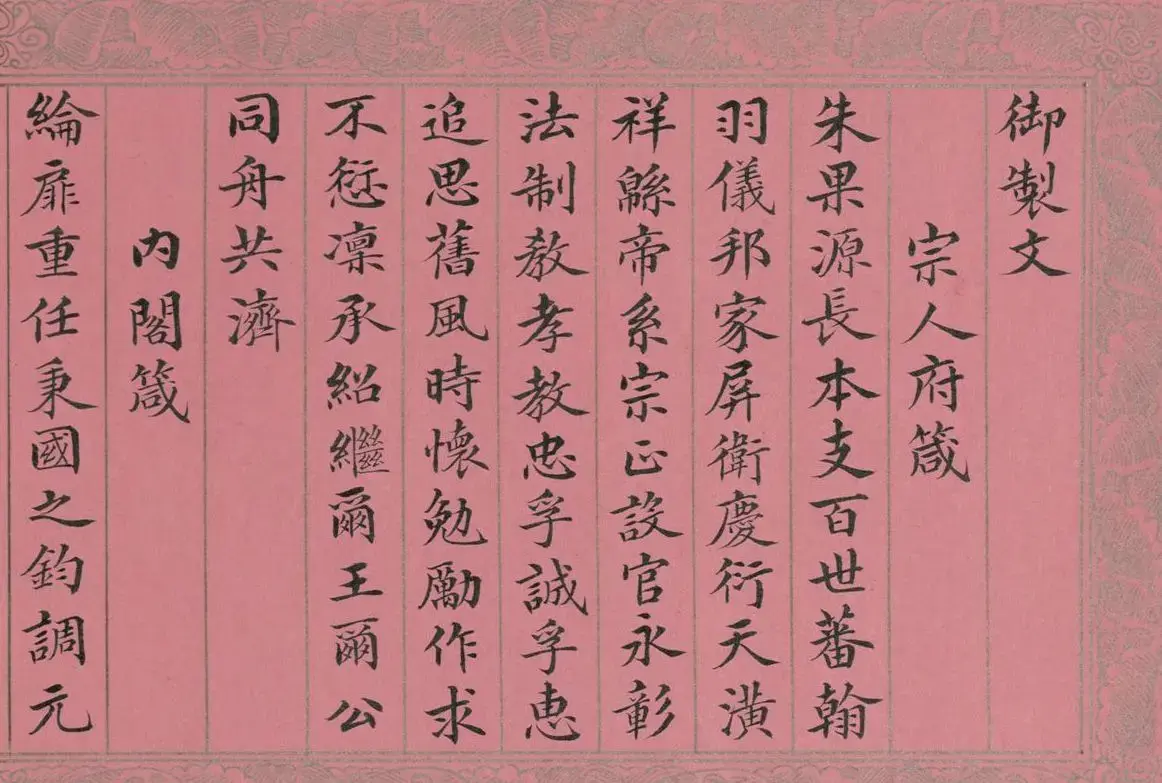 御製文
宗人府箴
朱果源長本支百世蕃翰
羽儀邦家屏衛慶衍天潢
祥緜帝系宗正設官永彰
法制教孝教忠孚誠孚惠
追思舊風時懷勉勵作求
不愆凜承紹繼爾王爾公
同舟共濟
內閣箴
綸扉重任秉國之鈞調元